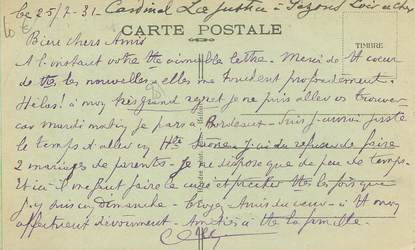 Le 25/7-31- Cardinal La Justice - Sazons Loir et Cher
CARTE POSTALE
TIMBRE
Biens chers Amis
A l'instant votre tte aimable lettre. Merci de tt coeur
de ttes les nouvelles - elles me touchent profondément.
Hélas! à mon très grand regret je ne puis aller vs trouver
car mardi matin, je pars à Bordeaux - Puis j'aurai juste
le temps d'aller en Hte J'ai du refuser de faire
2 mariages de parents - je ne dispose que de peu de temps.
Et ici il me faut faire le curé et prêcher ttes les fois que
j'y suis un Dimanche - Croyez Amis du coeur - à tt mon
affectueux dévouement - Amitiés à tte la famille.